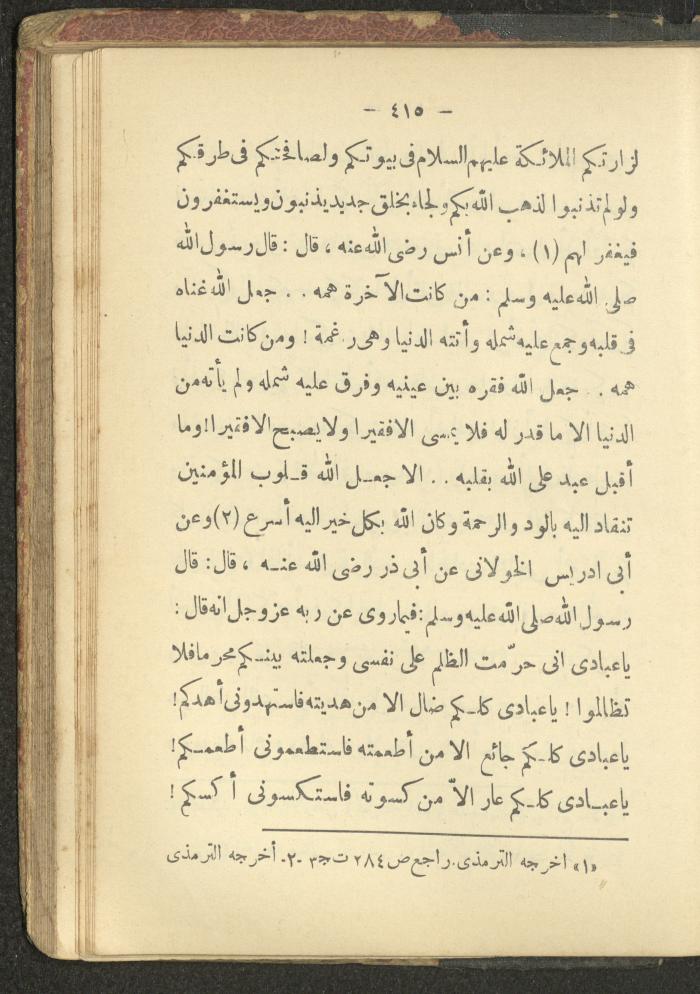 — ٤١٥ —
لزارتكم الملائكة عليهم السلام فى بيوتكم ولصافحتكم فى طرقكم
ولو لم تذنبوا لذهب الله بكم ولجاء بخلق جديد يذنبون ويستغفرون
فيغفر لهم (١) ، وعن أنس رضى الله عنه ، قال : قال رسول الله
صلى الله عليه وسلم : من كانت الآخرة همه . . جعل الله غناه
فى قلبه وجمع عليه شمله وأتته الدنيا وهى راغمة ! ومن كانت الدنيا
همه . . جعل الله فقره بين عينيه وفرق عليه شمله ولم يأته من
الدنيا الا ما قدر له فلا يمسى الا فقيرا ولا يصبح الا فقيرا ! وما
أقبل عبد على الله بقلبه . . الا جعل الله قلوب المؤمنين
تنقاد اليه بالود والرحمة وكان الله بكل خير اليه أسرع (٢) وعن
أبى ادريس الخولانى عن أبى ذر رضى الله عنه ، قال : قال
رسول الله صلى الله عليه وسلم : فيما روى عن ربه عز وجل انه قال :
ياعبادى انى حرّمت الظلم على نفسى وجعلته بينكم محرما فلا
تظالموا ! ياعبادى كلكم ضال الا من هديته فاستهدونى أهدكم !
ياعبادى كلكم جائع الا من أطعمته فاستطعمونى أطعمكم !
ياعبادى كلكم عار الاّ من كسوته فاستكسونى أكسكم !
«١» اخرجه الترمذى. راجع ص ٢٨٤ ت ج٣ -٢- أخرجه الترمذى